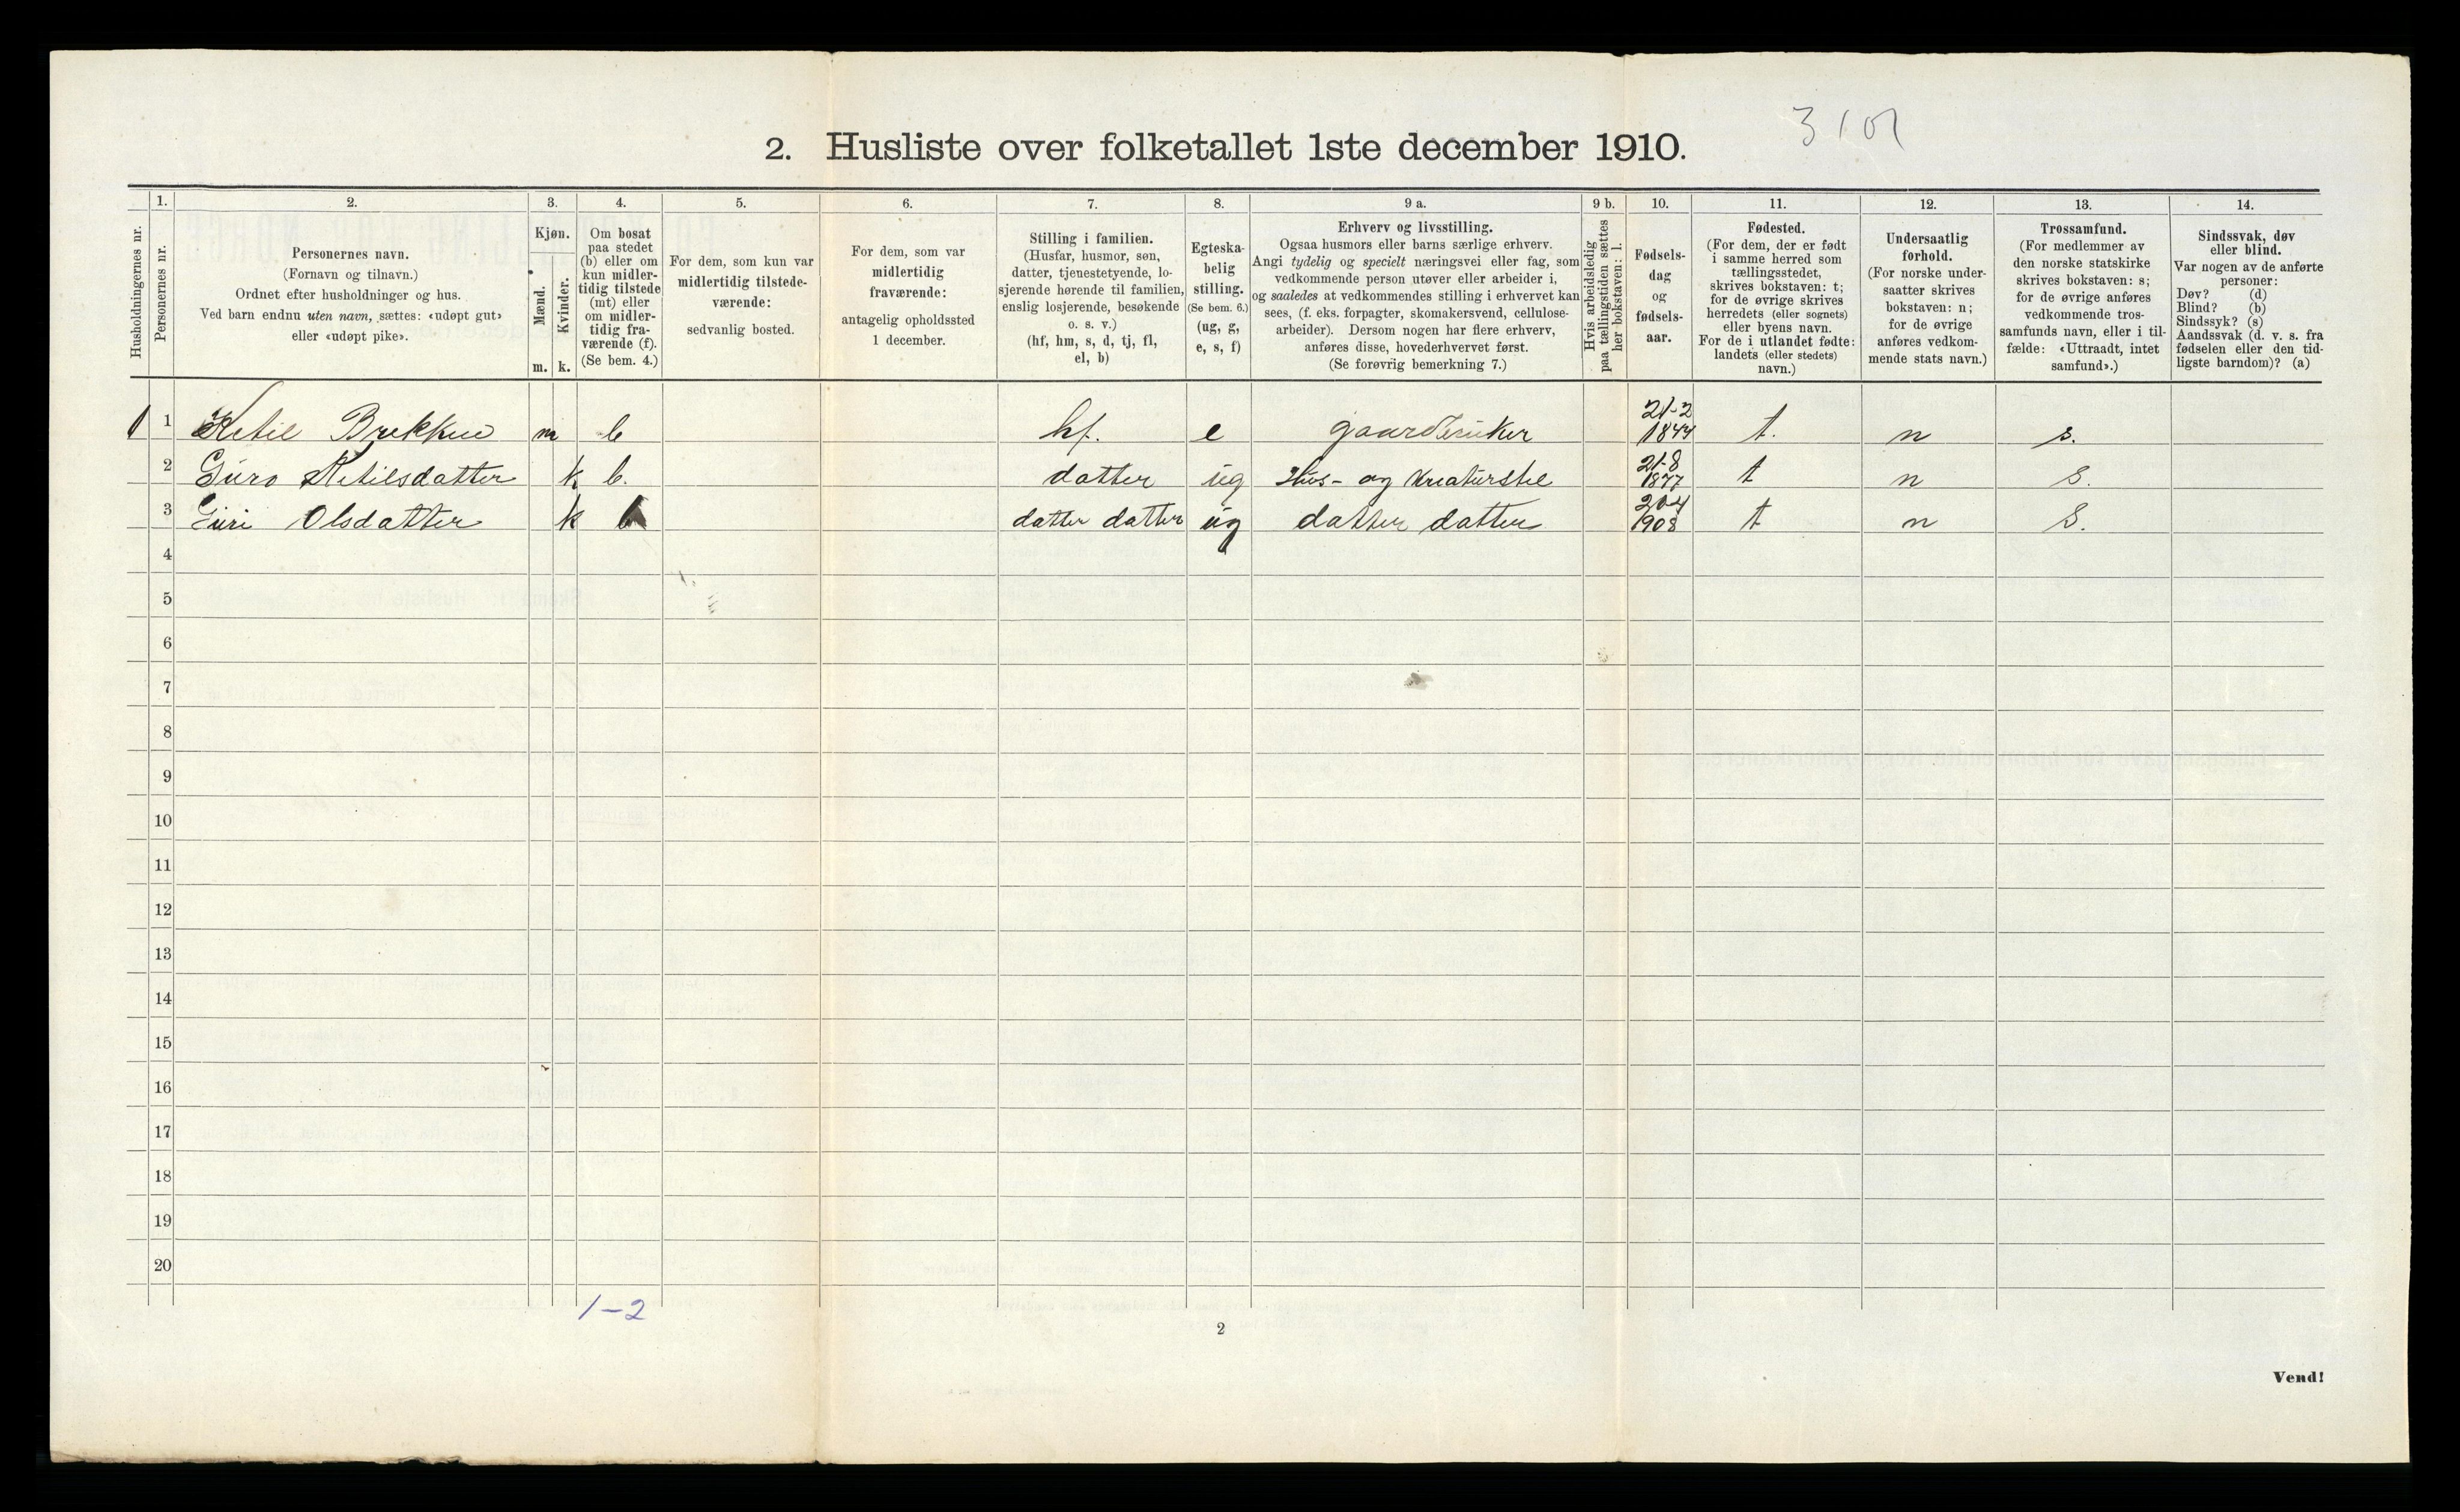 3 101
2. Husliste over folketallet 1ste december 1910.
Husholdningernes nr.
1.
Personernes nr.
2.
Personernes navn.
(Fornavn og tilnavn.)
Ordnet efter husholdninger og hus.
Ved barn endnu uten navn, sættes: «udøpt gut»
eller «udøpt pike».
3.
Kjøn.
Mænd.
Kvinder.
m. k.
4.
Om bosat
paa stedet
(b) eller om
kun midler-
tidig tilstede
(mt) eller
om midler-
tidig fra-
værende (f).
(Se bem. 4.)
5.
For dem, som kun var
midlertidig tilstede-
værende:
sedvanlig bosted.
6.
For dem, som var
midlertidig
fraværende:
antagelig opholdssted
1 december.
7.
Stilling i familien.
(Husfar, husmor, søn,
datter, tjenestetyende, lo-
sjerende hørende til familien,
enslig losjerende, besøkende
o. s. v.)
(hf, hm, s, d, tj, fl,
el, b)
8.
Egteska-
belig
stilling.
(Se bem. 6.)
(ug, g,
e, s, f)
9 a.
Erhverv og livsstilling.
Ogsaa husmors eller barns særlige erhverv.
Angi tydelig og specielt næringsvei eller fag, som
vedkommende person utøver eller arbeider i,
og saaledes at vedkommendes stilling i erhvervet kan
sees, (f. eks. forpagter, skomakersvend, cellulose-
arbeider). Dersom nogen har flere erhverv,
anføres disse, hovederhvervet først.
(Se forøvrig bemerkning 7.)
9 b.
Hvis arbeidsledig
paa tællingstiden sættes
her bokstaven: l.
10.
Fødsels-
dag
og
fødsels-
aar.
11.
Fødested.
(For dem, der er født
i samme herred som
tællingsstedet,
skrives bokstaven: t;
for de øvrige skrives
herredets (eller sognets)
eller byens navn.
For de i utlandet fødte:
landets (eller stedets)
navn.)
12.
Undersaatlig
forhold.
(For norske under-
saatter skrives
bokstaven: n;
for de øvrige
anføres vedkom-
mende stats navn.)
13.
Trossamfund.
(For medlemmer av
den norske statskirke
skrives bokstaven: s;
for de øvrige anføres
vedkommende tros-
samfunds navn, eller i til-
fælde: «Uttraadt, intet
samfund».)
14.
Sindssvak, døv
eller blind.
Var nogen av de anførte
personer:
Døv? (d)
Blind? (b)
Sindssyk? (s)
Aandssvak (d. v. s. fra
fødselen eller den tid-
ligste barndom)? (a)
1 1 Ketil Brekken m b hf. e gaardbruker 21-2 1844 t. n s.
2 Guro Ketilsdatter k b. datter ug Hus- og kreaturstel 21-8 1877 t n s.
3 Guri Olsdatter k b datter datter ug datter datter 20-4 1908 t n s.
4
5
6
7
8
9
10
11
12
13
14
15
16
17
18
19
20
1-2
2
Vend!